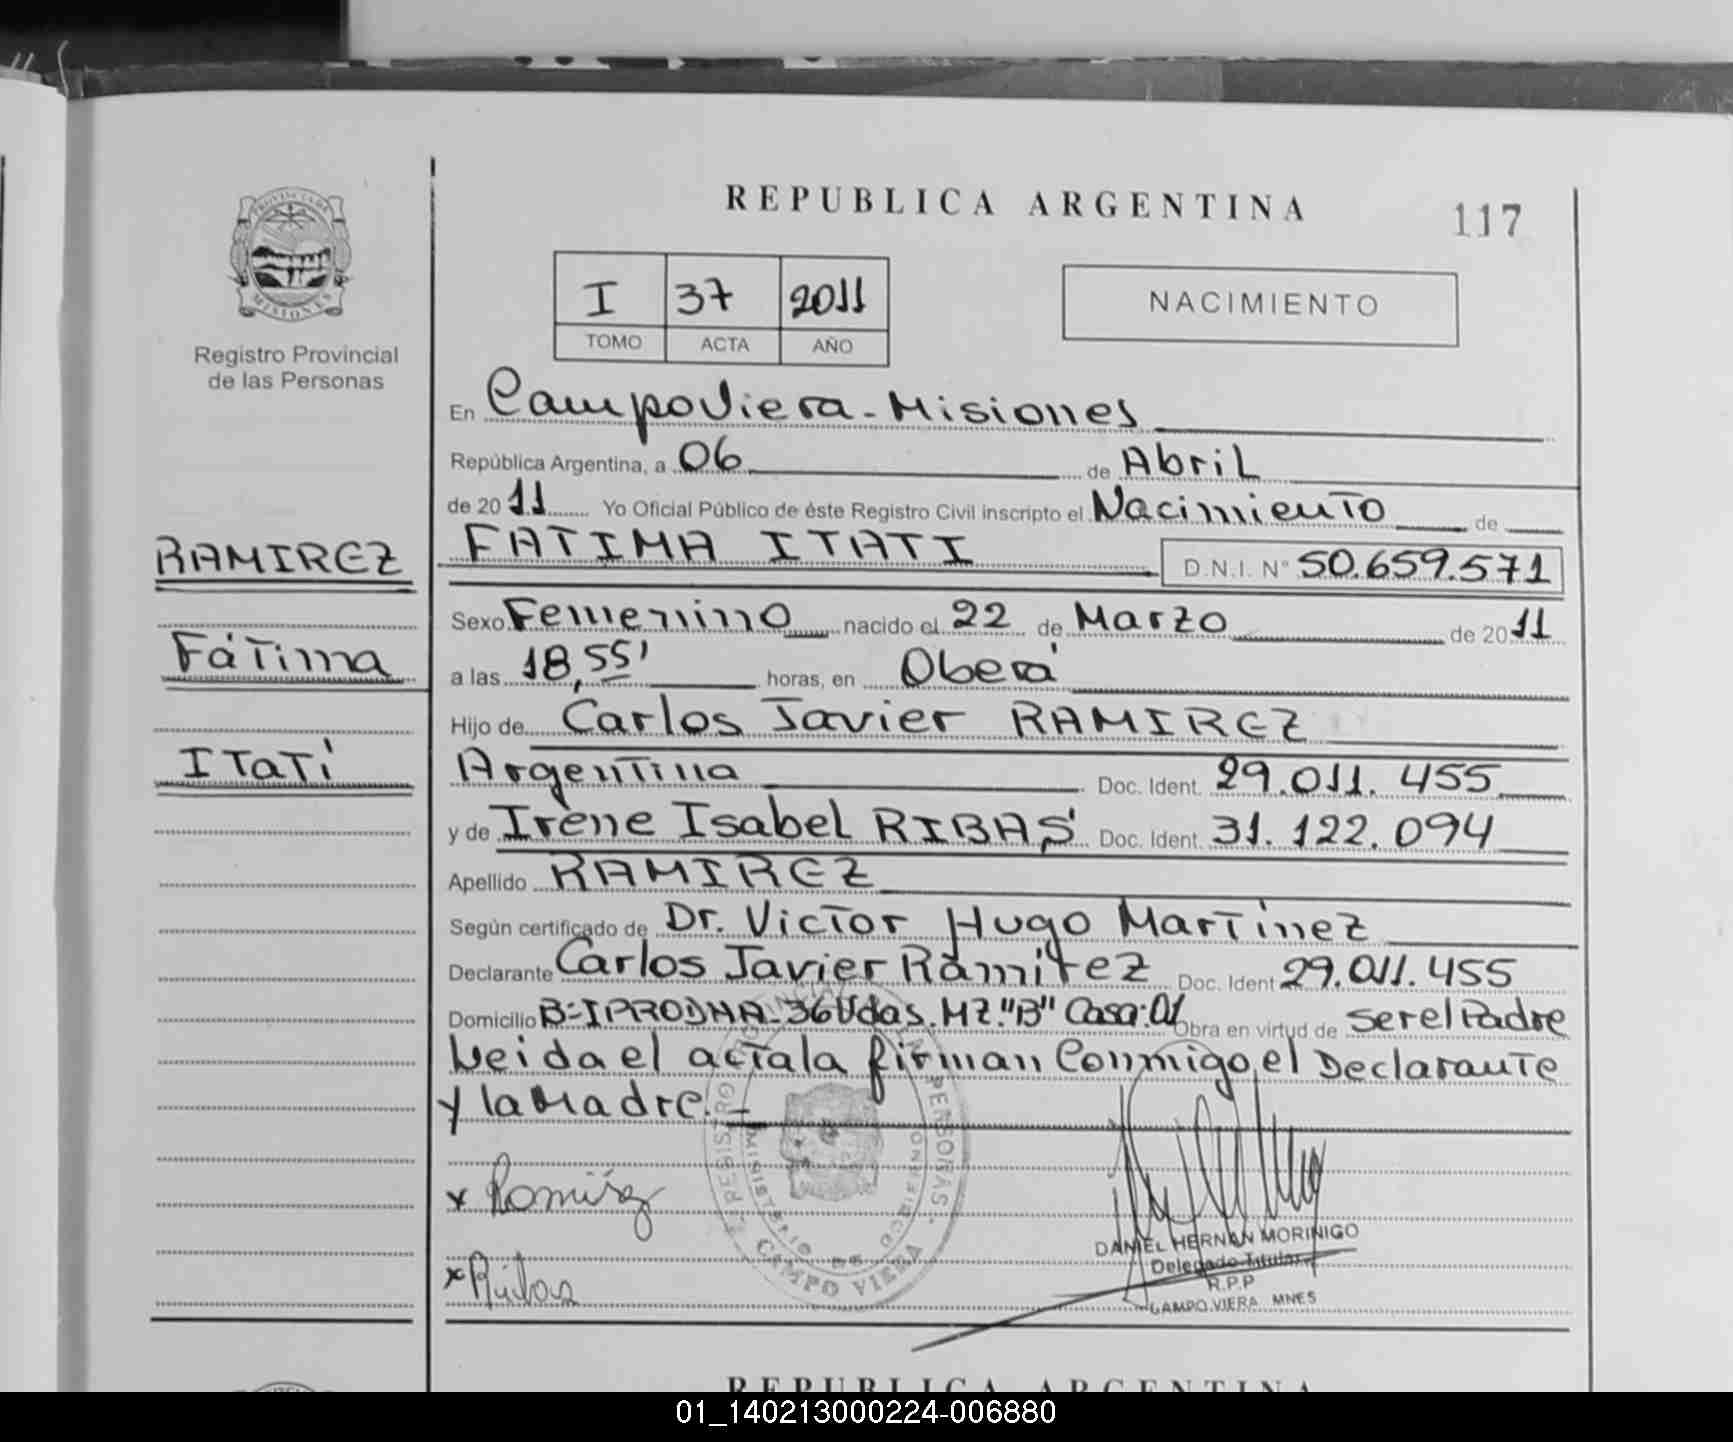 REPUBLICA ARGENTINA
117
PROVINCIA DE
MISIONES
Registro Provincial
de las Personas
I 37 2011
TOMO ACTA AÑO
NACIMIENTO
En Campo Viera - Misiones
República Argentina, a 06 de Abril
de 2011 Yo Oficial Público de éste Registro Civil inscripto el Nacimiento de
RAMIREZ
FATIMA ITATI D.N.I. Nº 50.659.571
Sexo Femenino nacido el 22 de Marzo de 2011
Fátima
a las 18,55' horas, en Oberá
Hijo de Carlos Javier RAMIREZ
Itatí
Argentina Doc. Ident. 29.011.455
y de Irene Isabel RIBAS Doc. Ident. 31.122.094
Apellido RAMIREZ
Según certificado de Dr. Victor Hugo Martínez
Declarante Carlos Javier Ramirez Doc. Ident 29.011.455
Domicilio B-IPRODHA-36 Vdas. MZ."B" Casa:01 Obra en virtud de ser el Padre
Leida el acta la firman Conmigo el Declarante
y la Madre. -
x Ramirez
x Ribas
REGISTRO PROVINCIAL DE LAS PERSONAS
MINISTERIO DE GOBIERNO
CAMPO VIERA
DANIEL HERNAN MORINIGO
Delegado Titular
R.P.P
CAMPO VIERA MNES
REPUBLICA ARGENTINA
01_140213000224-006880